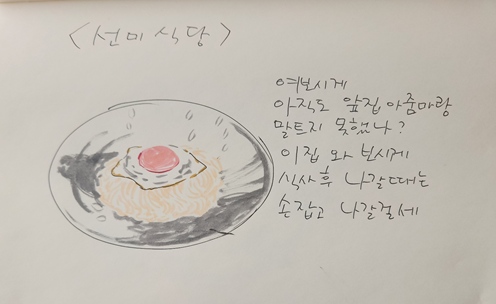 <선미식당>
여보시게
아직도 앞집아줌마랑
말트지 못했나?
이집 와 보시게
식사후 나갈때는
손잡고 나갈걸세